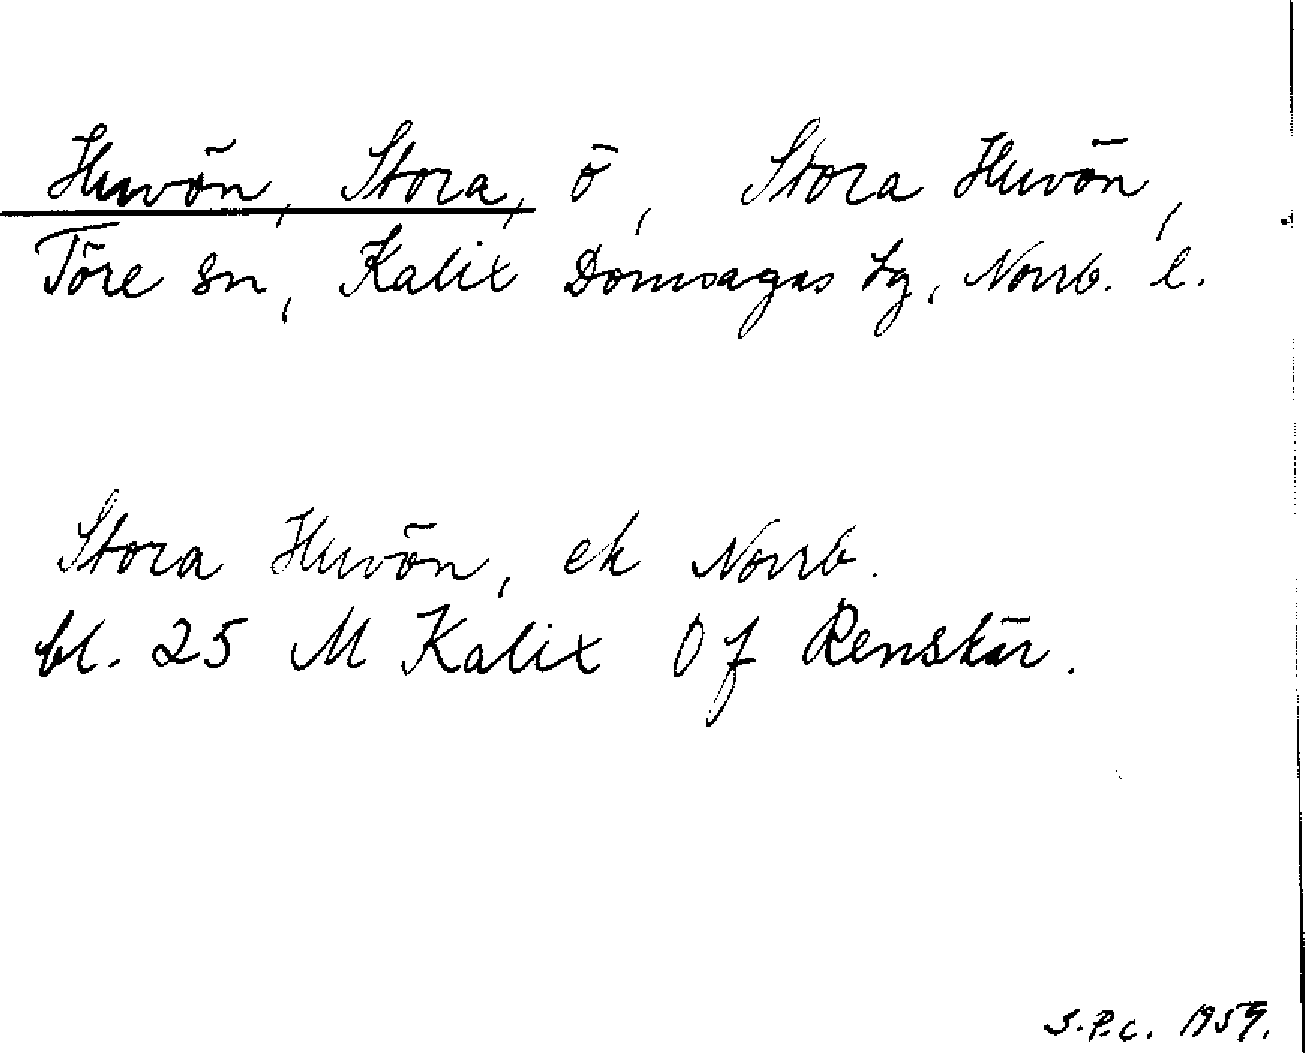 Huvön, Stora, ö, Stora Huvön,
Töre sn, Kalix Domsagas tg, Norrb. l.
Stora Huvön, ek Norrb.
bl. 25 M Kalix Of Renskär.
S.P.C. 1959.